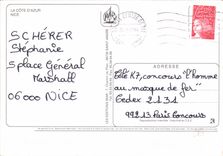 LA CÔTE D'AZUR
NICE
SCHÉRER
Stéphanie
5 place Général
Marshall
06000 NICE
ADRESSE
Télé K7, concours "l'homme
au masque de fer"
Cedex 2131
99213 Paris Concours